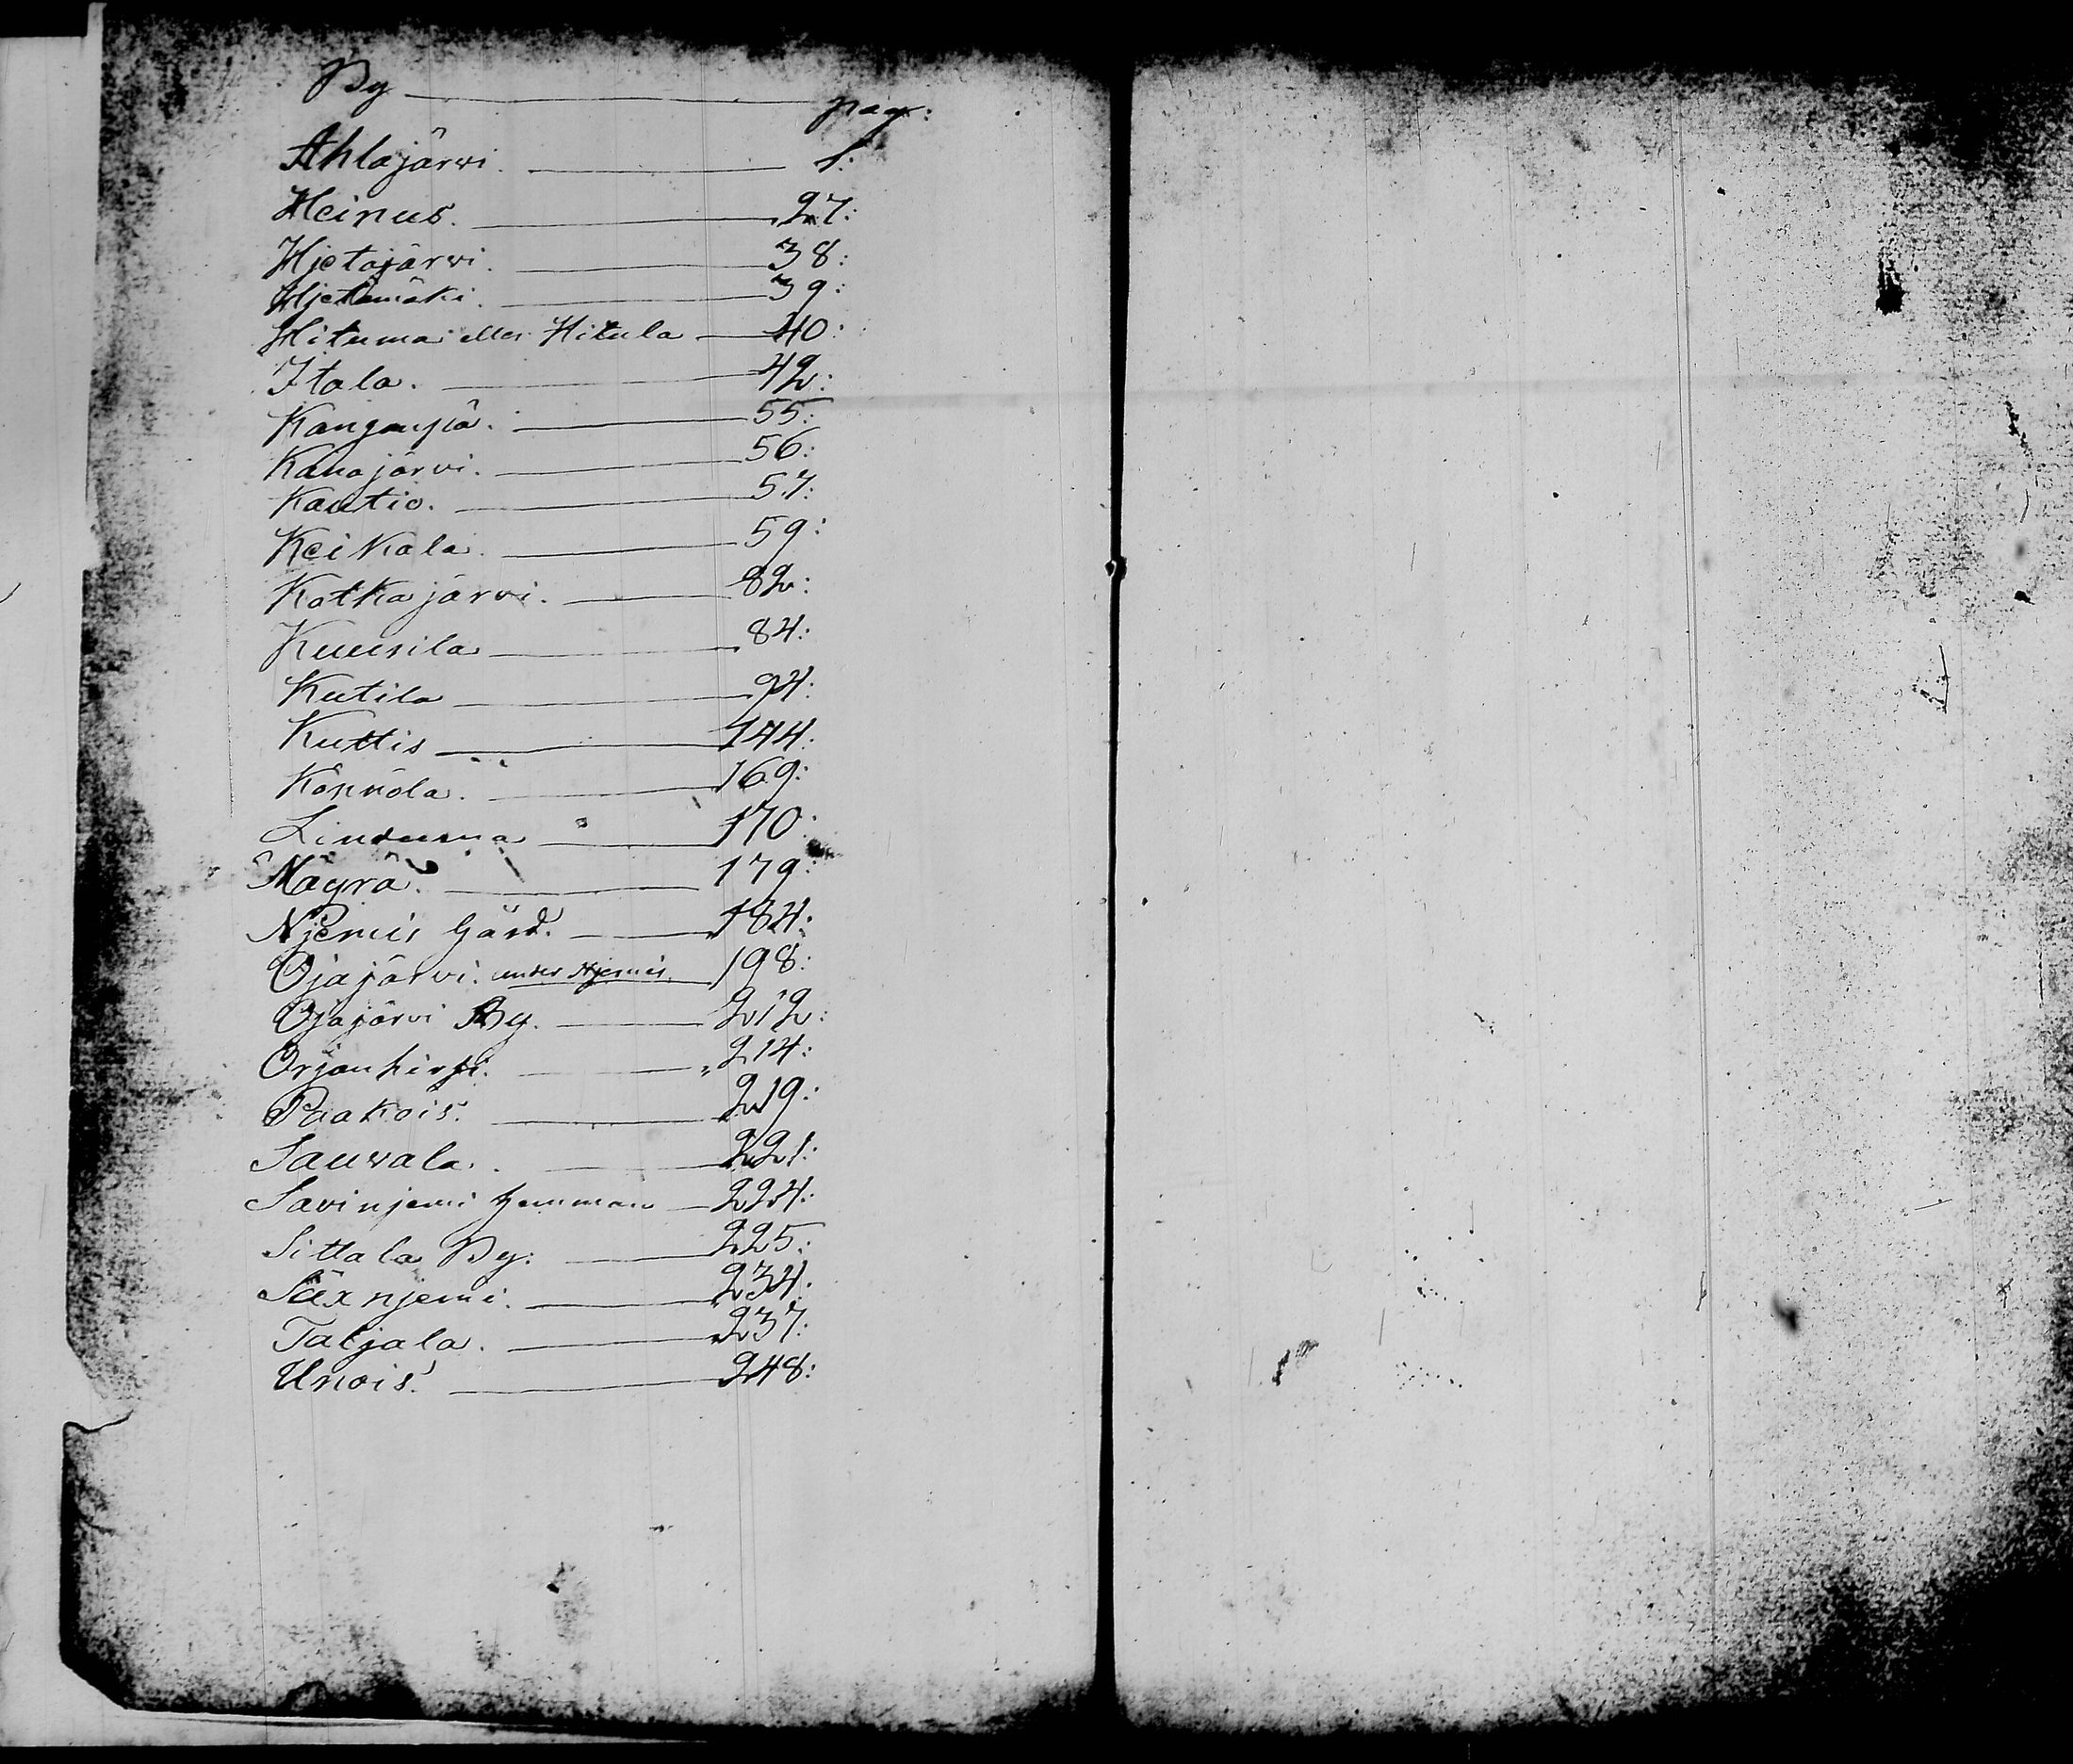 By pag:
Ahlajärvi. 1:
Heinus. 27:
Hjetajärvi. 38:
Hjetamäki. 39:
Hituma eller Hitula 40:
Itala. 42:
55:
Kanajärvi. 56:
Kautio. 57:
Keikala. 59:
Kotkajärvi. 82:
Kuusila 84:
Kutila 94:
Kuttis 144:
Könnölä. 169:
Linduma 170:
Mäyrä. 179:
Njemis Gård. 184:
Ojajärvi. under Njemis. 198:
Ojajärvi By. 212:
Orjanhirsi. 214:
Paakois. 219:
Sauvala. 221:
Savinjemi hemman 224:
Sittala By: 225:
Säxnjemi. 234:
Taljala. 237:
Unois. 248: